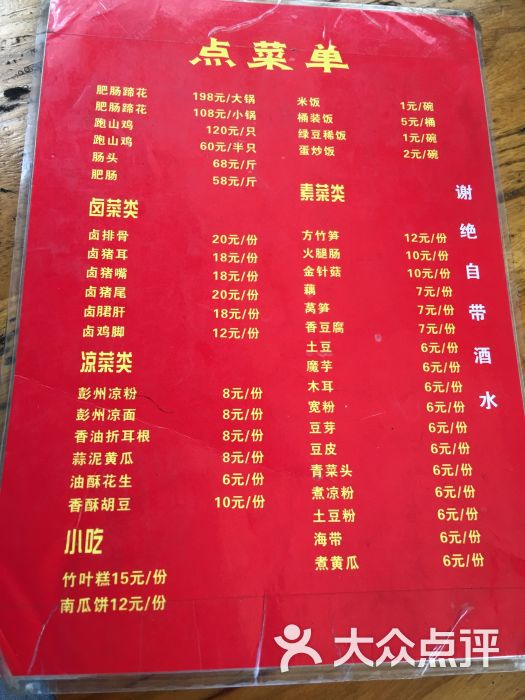 点菜单
肥肠蹄花 198元/大锅
肥肠蹄花 108元/小锅
跑山鸡 120元/只
跑山鸡 60元/半只
肠头 68元/斤
肥肠 58元/斤
卤菜类
卤排骨 20元/份
卤猪耳 18元/份
卤猪嘴 18元/份
卤猪尾 20元/份
卤䐃肝 18元/份
卤鸡脚 12元/份
凉菜类
彭州凉粉 8元/份
彭州凉面 8元/份
香油折耳根 8元/份
蒜泥黄瓜 8元/份
油酥花生 6元/份
香酥胡豆 10元/份
小吃
竹叶糕15元/份
南瓜饼12元/份
米饭 1元/碗
桶装饭 5元/桶
绿豆稀饭 1元/碗
蛋炒饭 2元/碗
素菜类
方竹笋 12元/份
火腿肠 10元/份
金针菇 10元/份
藕 7元/份
莴笋 7元/份
香豆腐 7元/份
土豆 6元/份
魔芋 6元/份
木耳 6元/份
宽粉 6元/份
豆芽 6元/份
豆皮 6元/份
青菜头 6元/份
煮凉粉 6元/份
土豆粉 6元/份
海带 6元/份
煮黄瓜 6元/份
谢绝自带酒水
大众点评